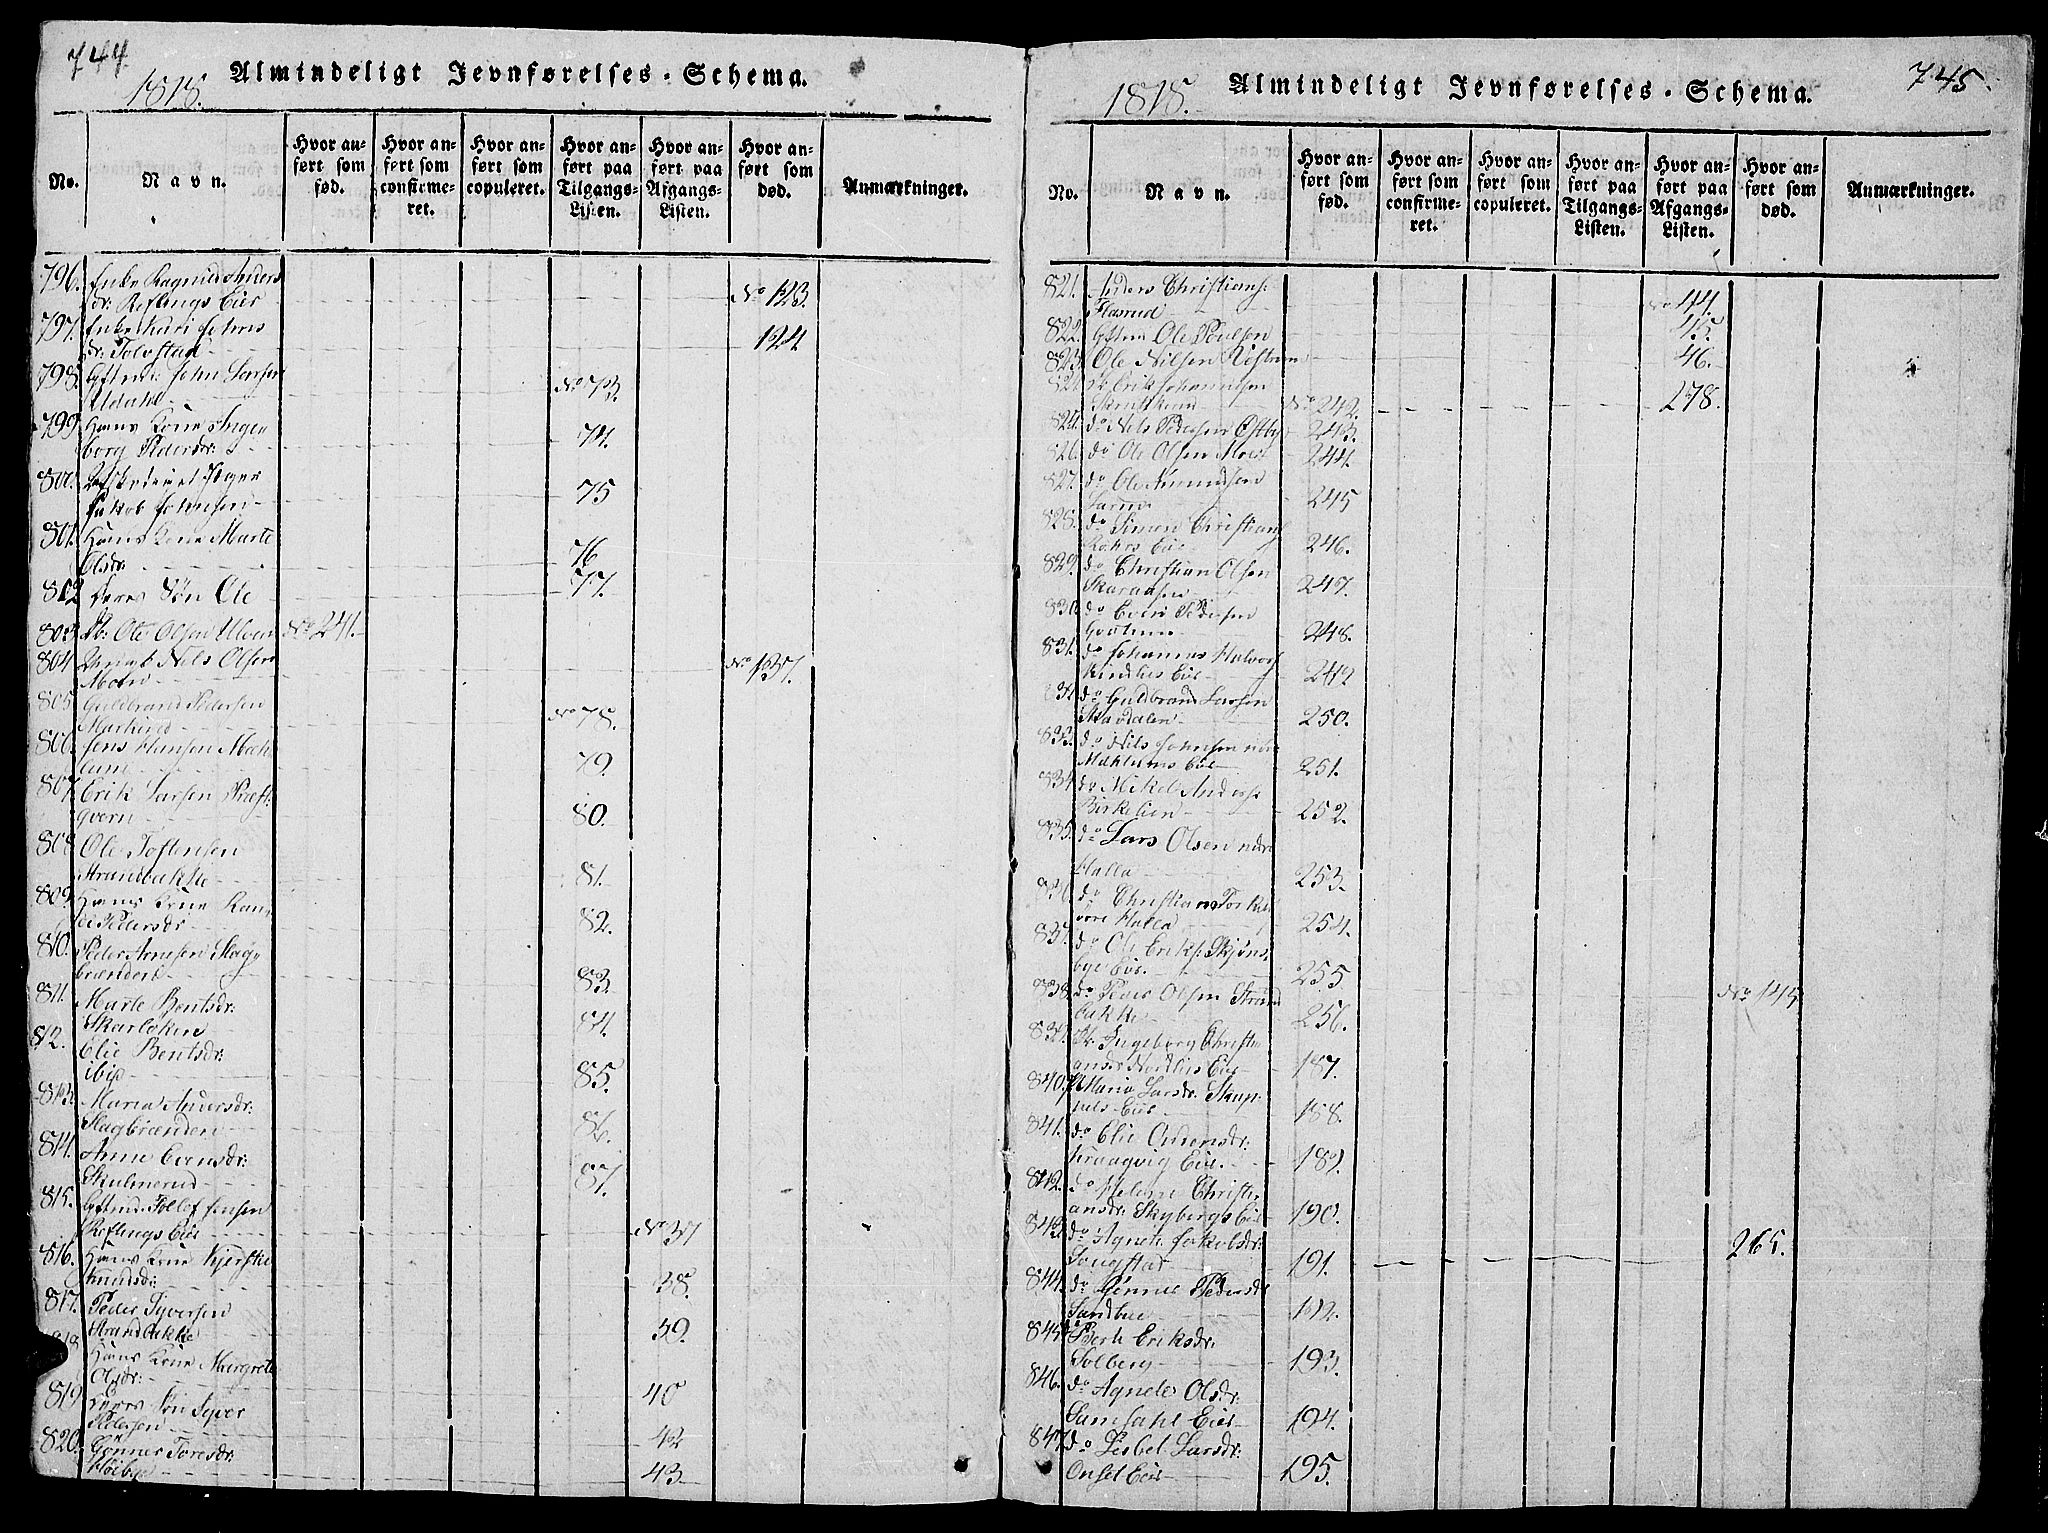 744
1818.
Almindeligt Jevnførelses-Schema.
No.
Navn.
Hvor an-
ført som
fød.
Hvor an-
ført som
confirme-
ret.
Hvor an-
ført som
copuleret.
Hvor an-
ført paa
Tilgangs-
Listen.
Hvor an-
ført paa
Afgangs-
Listen.
Hvor an-
ført som
død.
Anmærkninger.
796. Enke Ragnild Anders
dr: Reflings Eie No 123.
797. Enke Kari Johns
dr: Tolvstad 124.
798. John Larsen
Udahl No 73.
799. Hans Kone Inge-
borg Pedersdr: 74.
800.
Jakob Johnsen 75
801. Hans Kone Marte
Olsdr: 76
802 Deres Søn Ole 77.
803. Ole Olsen Ulven No 241.
804. Nils Olsen
Moen No 137.
805. Guldbrand Pedersen
Markerud No 78.
806. Jens Hansen Mæh-
lum 79.
807. Erik Larsen Præst-
qvern 80.
808 Ole Tostensen
Strandbakke 81.
809. Hans Kone Kari
Pedersdr 82.
810. Peder Arnesen Slag-
brænden 83.
811. Marte Bentsdr:
Skarløken 84.
812. Elie Bentsdr:
ibid 85.
813. Maria Andersdr:
Slagbrænden 86.
814. Anne Evensdr:
Skulmerud 87.
815. Tollef Jensen
Reflings Eie No 37
816. Hans Kone Kjerstie
Knudsdr: 38.
817. Peder Syversen
Strandbakke 39.
818 Hans Kone Margrete
Olsdr: 40
819 Deres Søn Syver
Pedersen 42
820. Gønner Toresdr:
Høibye 43.
745.
1818.
Almindeligt Jevnførelses-Schema.
No.
Navn.
Hvor an-
ført som
fød.
Hvor an-
ført som
confirme-
ret.
Hvor an-
ført som
copuleret.
Hvor an-
ført paa
Tilgangs-
Listen.
Hvor an-
ført paa
Afgangs-
Listen.
Hvor an-
ført som
død.
Anmærkninger.
821. Anders Christians:
No 44.
822. Ole Poulsen 45.
823. Ole Nilsen 46.
Erik Johannesen
No 242. 278.
do Nils Pedersen Østby 243.
826. do Ole Olsen Moe 244.
827. do Ole Amundsen
245
828. do Simen Christians
Eie 246.
829. do Christian Olsen
Skaraasen 247.
830. do Even Pedersen
248.
831. do Johannes Halvors
Eie 249
do Guldbrand Larsen
Skavdalen 250.
833. do Nils Johnsen
Mæhlums Eie 251.
834 do Mikel Anders:
Birkelien 252.
835. do Lars Olsen nedre
Halla 253.
836. do Christian
Halla 254.
837. do Ole Eriks: Skjøns-
bye Eie. 255
838. do Peder Olsen Strand
bakke 256. No 145
839. Ingeborg Christi-
ansdr Eie 187.
840. Maria Larsdr:
Eie 188.
841. do Elie
Kraagvig Eie. 189.
842. do Helene Christi-
ansdr: Skybergs Eie 190.
843. do Agnete Jakobsdr:
191. 265.
844. do Gønner Pedersdr
Sandbue 192.
845. Berte Eriksdr:
Solberg 193.
846. do Agnete Olsdr:
Eie 194.
847. do Lisbet Larsdr:
Onset Eie 195.